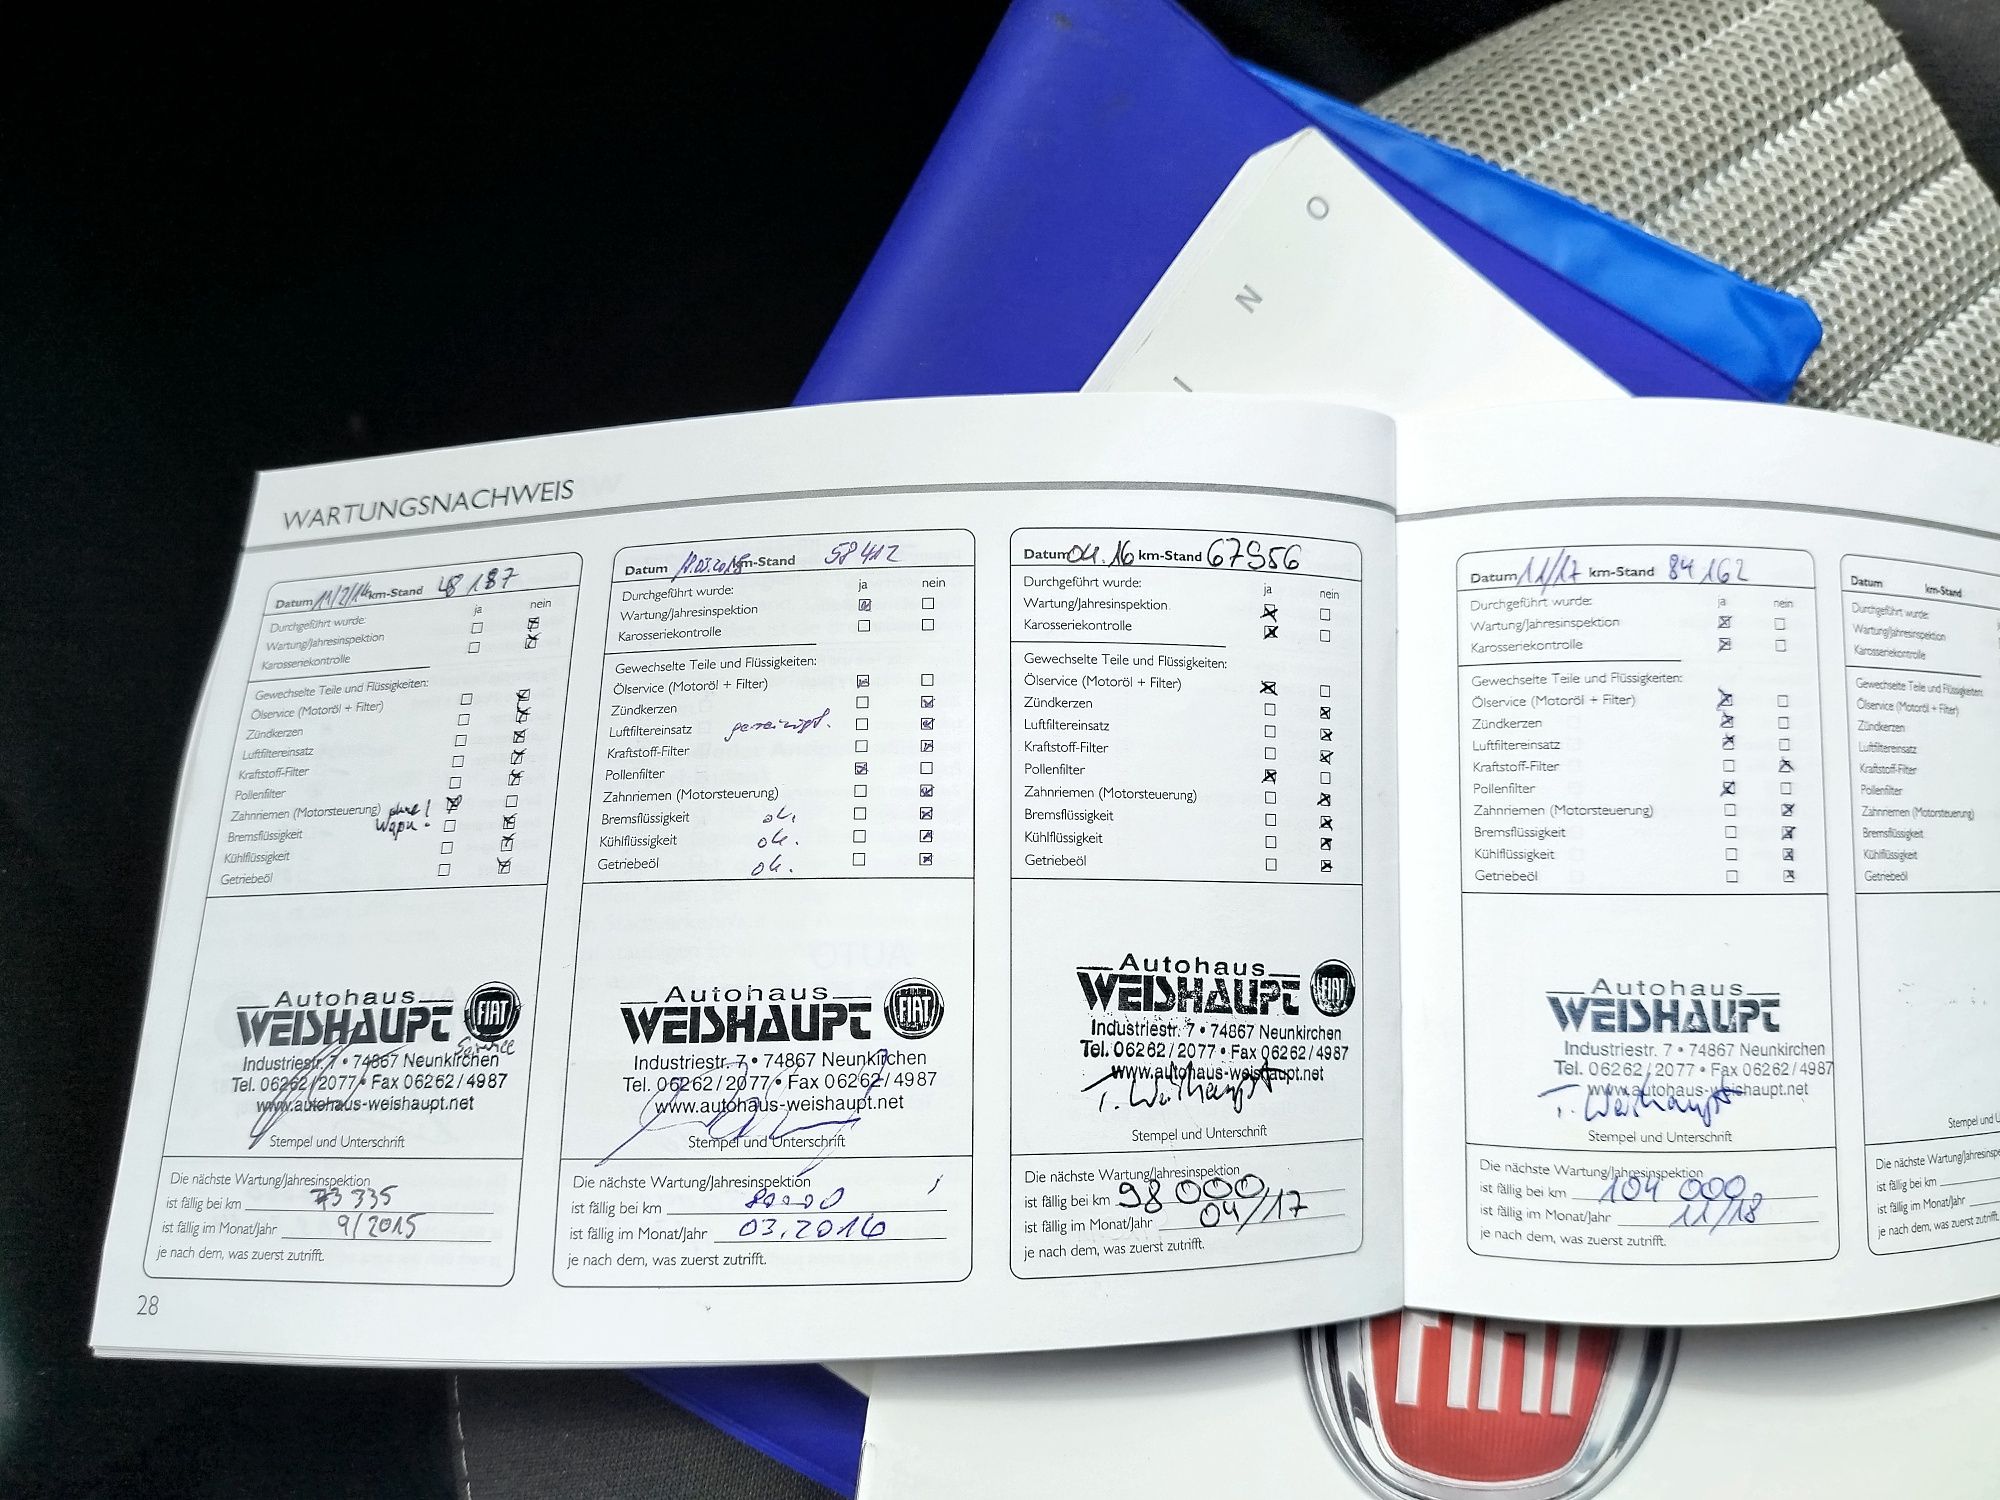 I N O
WARTUNGSNACHWEIS
Datum 11/2/14 km-Stand 48 187
Durchgeführt wurde: ja nein
Wartung/Jahresinspektion
Karosseriekontrolle
Gewechselte Teile und Flüssigkeiten:
Ölservice (Motoröl + Filter)
Zündkerzen
Luftfiltereinsatz
Kraftstoff-Filter
Pollenfilter
Zahnriemen (Motorsteuerung) ohne!
Bremsflüssigkeit Wapu.
Kühlflüssigkeit
Getriebeöl
Autohaus
WEISHAUPT FIAT
Service
Industriestr. 7 • 74867 Neunkirchen
Tel. 06262/2077 • Fax 06262/4987
www.autohaus-weishaupt.net
Stempel und Unterschrift
Die nächste Wartung/Jahresinspektion
ist fällig bei km 73 335
ist fällig im Monat/Jahr 9/2015
je nach dem, was zuerst zutrifft.
28
Datum km-Stand 58412
Durchgeführt wurde: ja nein
Wartung/Jahresinspektion
Karosseriekontrolle
Gewechselte Teile und Flüssigkeiten:
Ölservice (Motoröl + Filter)
Zündkerzen
Luftfiltereinsatz gereinigt.
Kraftstoff-Filter
Pollenfilter
Zahnriemen (Motorsteuerung)
Bremsflüssigkeit ok.
Kühlflüssigkeit ok.
Getriebeöl ok.
Autohaus
WEISHAUPT FIAT
Industriestr. 7 • 74867 Neunkirchen
Tel. 06262/2077 • Fax 06262/4987
www.autohaus-weishaupt.net
Stempel und Unterschrift
Die nächste Wartung/Jahresinspektion
ist fällig bei km 80000
ist fällig im Monat/Jahr 03.2016
je nach dem, was zuerst zutrifft.
Datum 04.16 km-Stand 67956
Durchgeführt wurde: ja nein
Wartung/Jahresinspektion
Karosseriekontrolle
Gewechselte Teile und Flüssigkeiten:
Ölservice (Motoröl + Filter)
Zündkerzen
Luftfiltereinsatz
Kraftstoff-Filter
Pollenfilter
Zahnriemen (Motorsteuerung)
Bremsflüssigkeit
Kühlflüssigkeit
Getriebeöl
Autohaus
WEISHAUPT FIAT
Industriestr. 7 • 74867 Neunkirchen
Tel. 06262/2077 • Fax 06262/4987
www.autohaus-weishaupt.net
T. Weishaupt
Stempel und Unterschrift
Die nächste Wartung/Jahresinspektion
ist fällig bei km 98 000
ist fällig im Monat/Jahr 04/17
je nach dem, was zuerst zutrifft.
Datum 11/17 km-Stand 84 162
Durchgeführt wurde: ja nein
Wartung/Jahresinspektion
Karosseriekontrolle
Gewechselte Teile und Flüssigkeiten:
Ölservice (Motoröl + Filter)
Zündkerzen
Luftfiltereinsatz
Kraftstoff-Filter
Pollenfilter
Zahnriemen (Motorsteuerung)
Bremsflüssigkeit
Kühlflüssigkeit
Getriebeöl
Autohaus
WEISHAUPT
Industriestr. 7 • 74867 Neunkirchen
Tel. 06262/2077 • Fax 06262/4987
www.autohaus-weishaupt.net
T. Weishaupt
Stempel und Unterschrift
Die nächste Wartung/Jahresinspektion
ist fällig bei km 104 000
ist fällig im Monat/Jahr 11/18
je nach dem, was zuerst zutrifft.
Datum km-Stand
Durchgeführt wurde:
Wartung/Jahresinspektion
Karosseriekontrolle
Gewechselte Teile und Flüssigkeiten:
Ölservice (Motoröl + Filter)
Zündkerzen
Luftfiltereinsatz
Kraftstoff-Filter
Pollenfilter
Zahnriemen (Motorsteuerung)
Bremsflüssigkeit
Kühlflüssigkeit
Getriebeöl
Stempel und U
Die nächste Wartung/Jahresinspe
ist fällig bei km
ist fällig im Monat/Jahr
je nach dem, was zuerst zutrifft.
FIAT